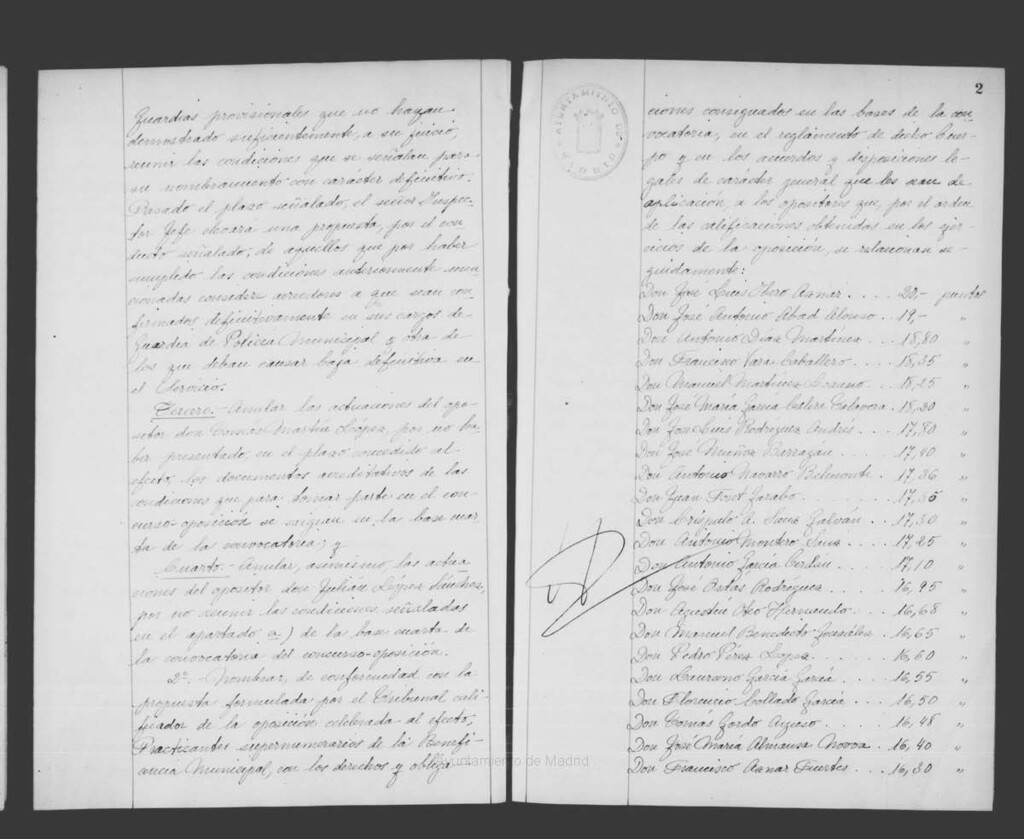 Guardias provisionales que no hayan
demostrado suficientemente, a su juicio,
reunir las condiciones que se señalan para
su nombramiento con carácter definitivo.
Pasado el plazo señalado, el señor Inspec-
tor Jefe elevará una propuesta, por el con
ducto señalado, de aquellos que por haber
cumplido las condiciones anteriormente men
cionadas considere acreedores a que sean con
firmados definitivamente en sus cargos de
Guardia de Policía Municipal y otra de
los que deban causar baja definitiva en
el Servicio.
Tercero.- Anular las actuaciones del opo-
sitor don Tomás Martín López, por no ha-
ber presentado, en el plazo concedido al
efecto, los documentos acreditativos de las
condiciones que para tomar parte en el con-
curso-oposición se exigían en la base cuar-
ta de la convocatoria; y
Cuarto.- Anular, asimismo, las actua-
ciones del opositor don Julián López Sánchez,
por no reunir las condiciones señaladas
en el apartado a) de la base cuarta de
la convocatoria del concurso-oposición.
2º.- Nombrar, de conformidad con la
propuesta formulada por el Tribunal cali-
ficador de la oposición celebrada al efecto,
Practicantes supernumerarios de la Benefi-
cencia Municipal, con los derechos y obliga-
2
AYUNTAMIENTO DE MADRID
ciones consignados en las bases de la con-
vocatoria, en el reglamento de dicho Cuer-
po y en los acuerdos y disposiciones le-
gales de carácter general que les sean de
aplicación, a los opositores que, por el orden
de las calificaciones obtenidas en los ejer-
cicios de la oposición, se relacionan se-
guidamente:
Don José Luis Ibero Aznar . . . . 20,- puntos
Don José Antonio Abad Alonso . . 19,- "
Don Antonio Díaz Martínez . . . 18,80 "
Don Francisco Vara Caballero . . . . 18,35 "
Don Manuel Martínez . . . 18,25 "
Don José María García Talavera . 18,20 "
Don José Luis Rodríguez Andrés . . . 17,80 "
Don José Muñoz Barragán . . . . 17,40 "
Don Antonio Navarro Belmonte . 17,36 "
Don Juan Font Jarabo . . . . . . 17,35 "
Don Críspulo A. Sanz Galván . . . 17,30 "
Don Antonio Montero Sanz . . . . 17,25 "
Don Antonio García Cerdán . . . 17,10 "
Don José Ardás Rodríguez . . . . 16,95 "
Don Agustín Hernando . . . 16,68 "
Don Manuel Benedicto González . . 16,65 "
Don Pedro Pérez López . . . . . 16,60 "
Don García García . . . 16,55 "
Don Florencio Collado García . . . 16,50 "
Don Tomás Gordo . . . . 16,48 "
Don José María Almansa Novoa . 16,40 "
Don Francisco Aznar Fuertes . . . 16,30 "
Ayuntamiento de Madrid